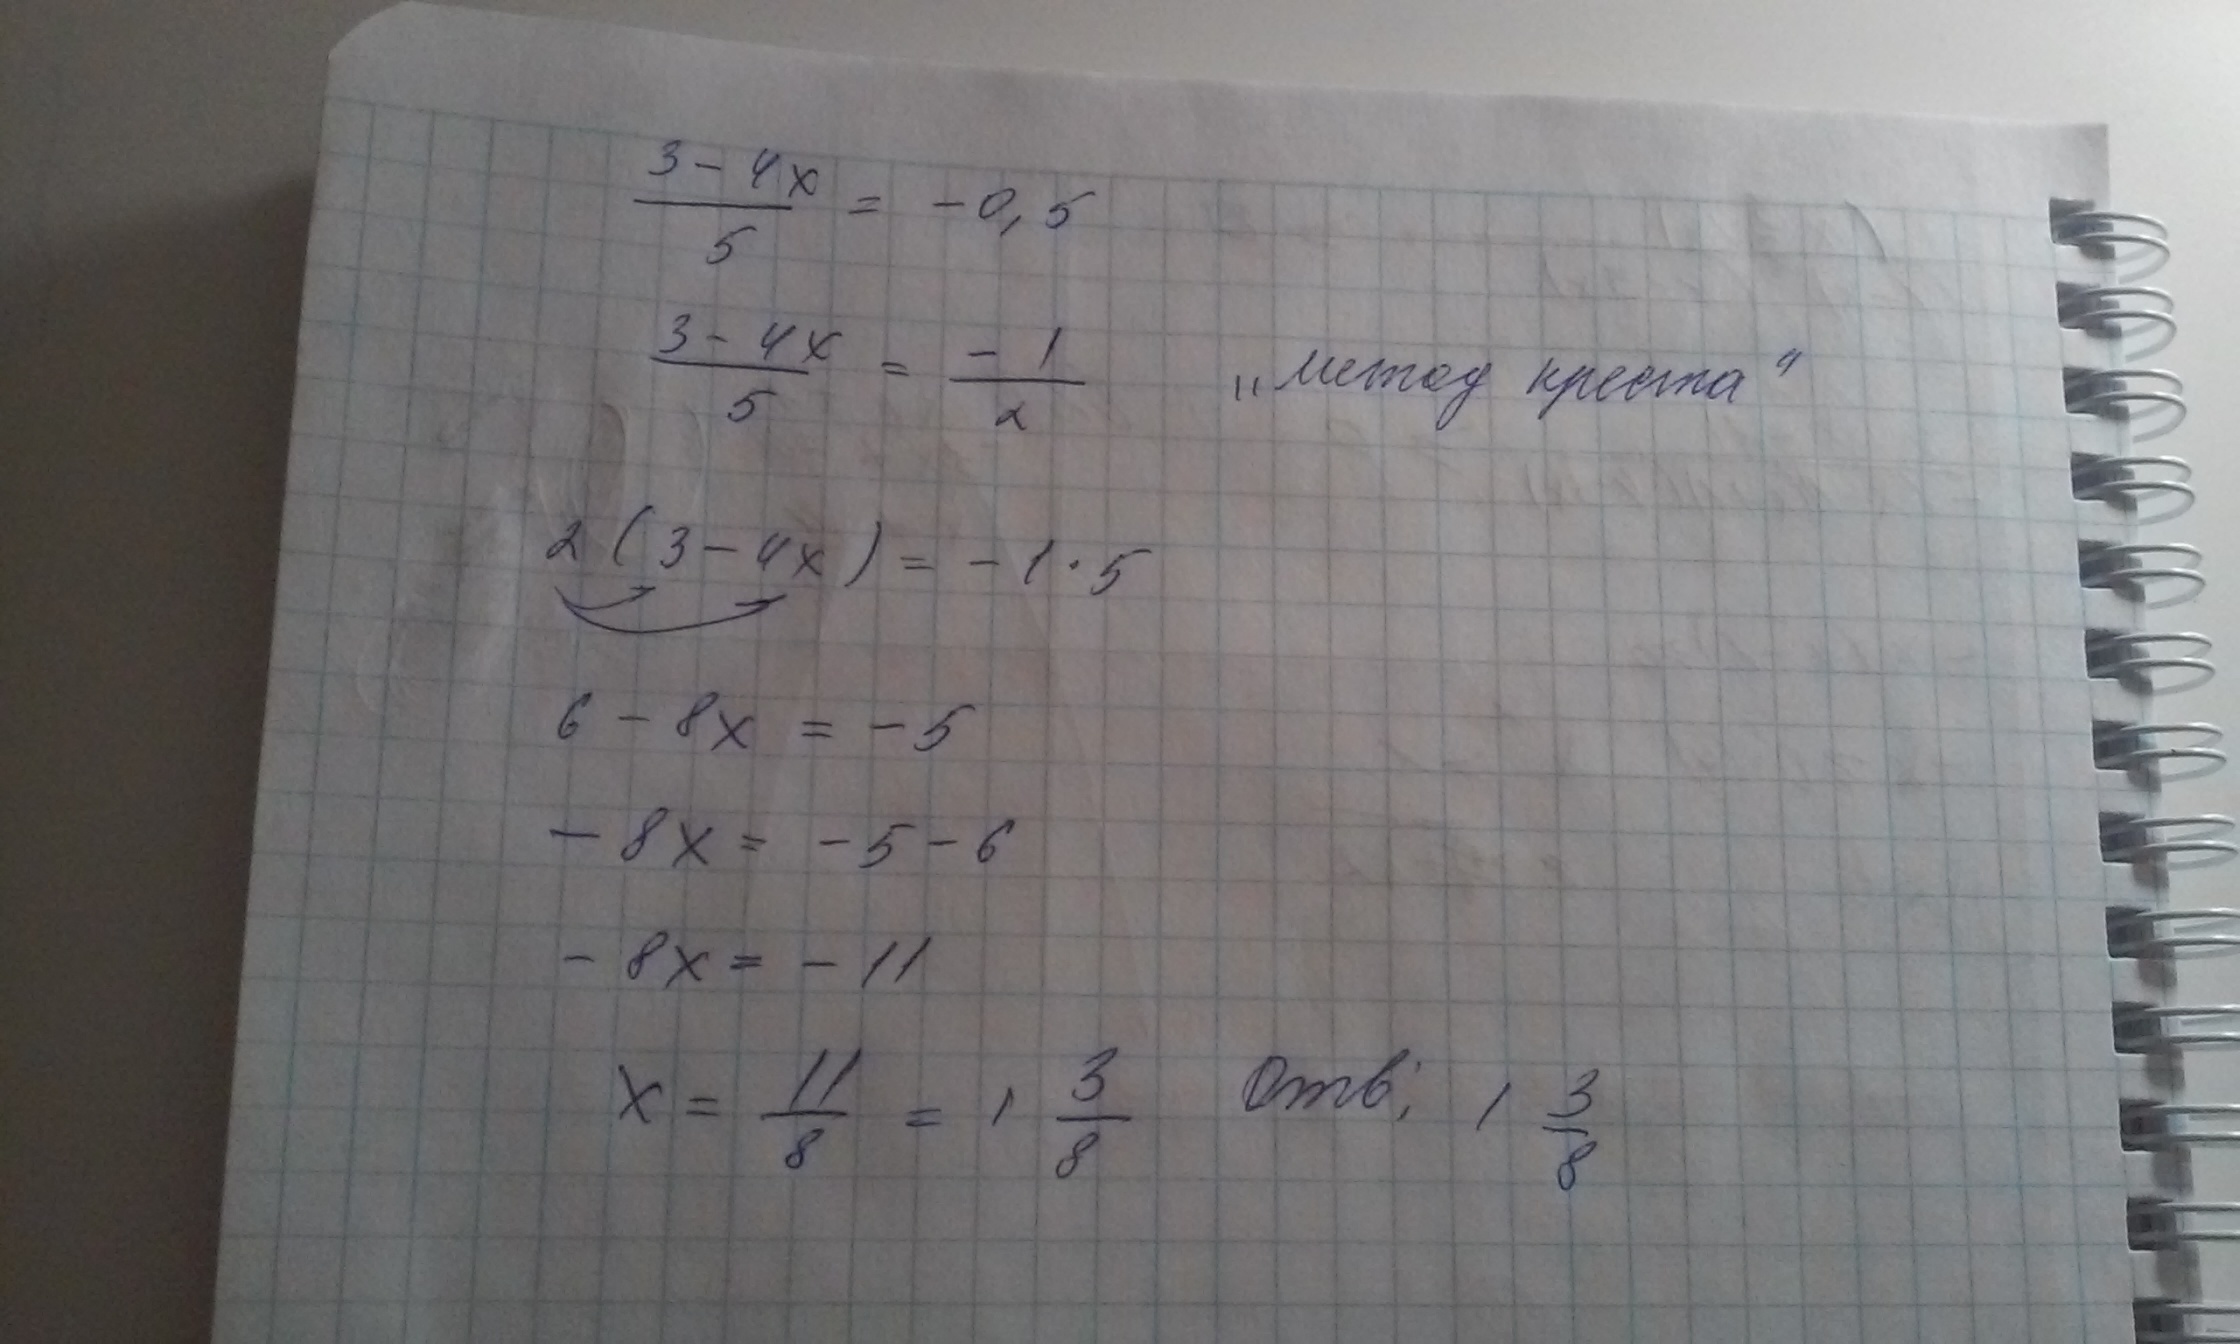 (3 - 4x)/5 = -0,5
(3 - 4x)/5 = -1/2 „метод креста“
2(3 - 4x) = -1 · 5
6 - 8x = -5
-8x = -5 - 6
-8x = -11
x = 11/8 = 1 3/8 Отв: 1 3/8